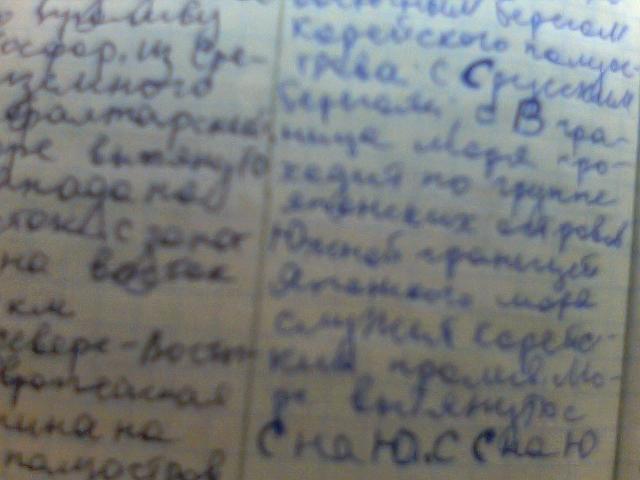 проливу
Босфор. из Сре-
земного
бралтарский
ре вытянуто
запада на
стока с запат
на восток
км
северо-Восто
Европейская
чина на
полуостров
восточным берегом
Корейского полуос-
трова с С русским
берегом с В гра-
ница моря про-
ходит по группе
японских островов
Южной границей
Японского моря
служит Корейс-
кий пролив. Мо-
ре вытянуто с
С на Ю. с С на Ю